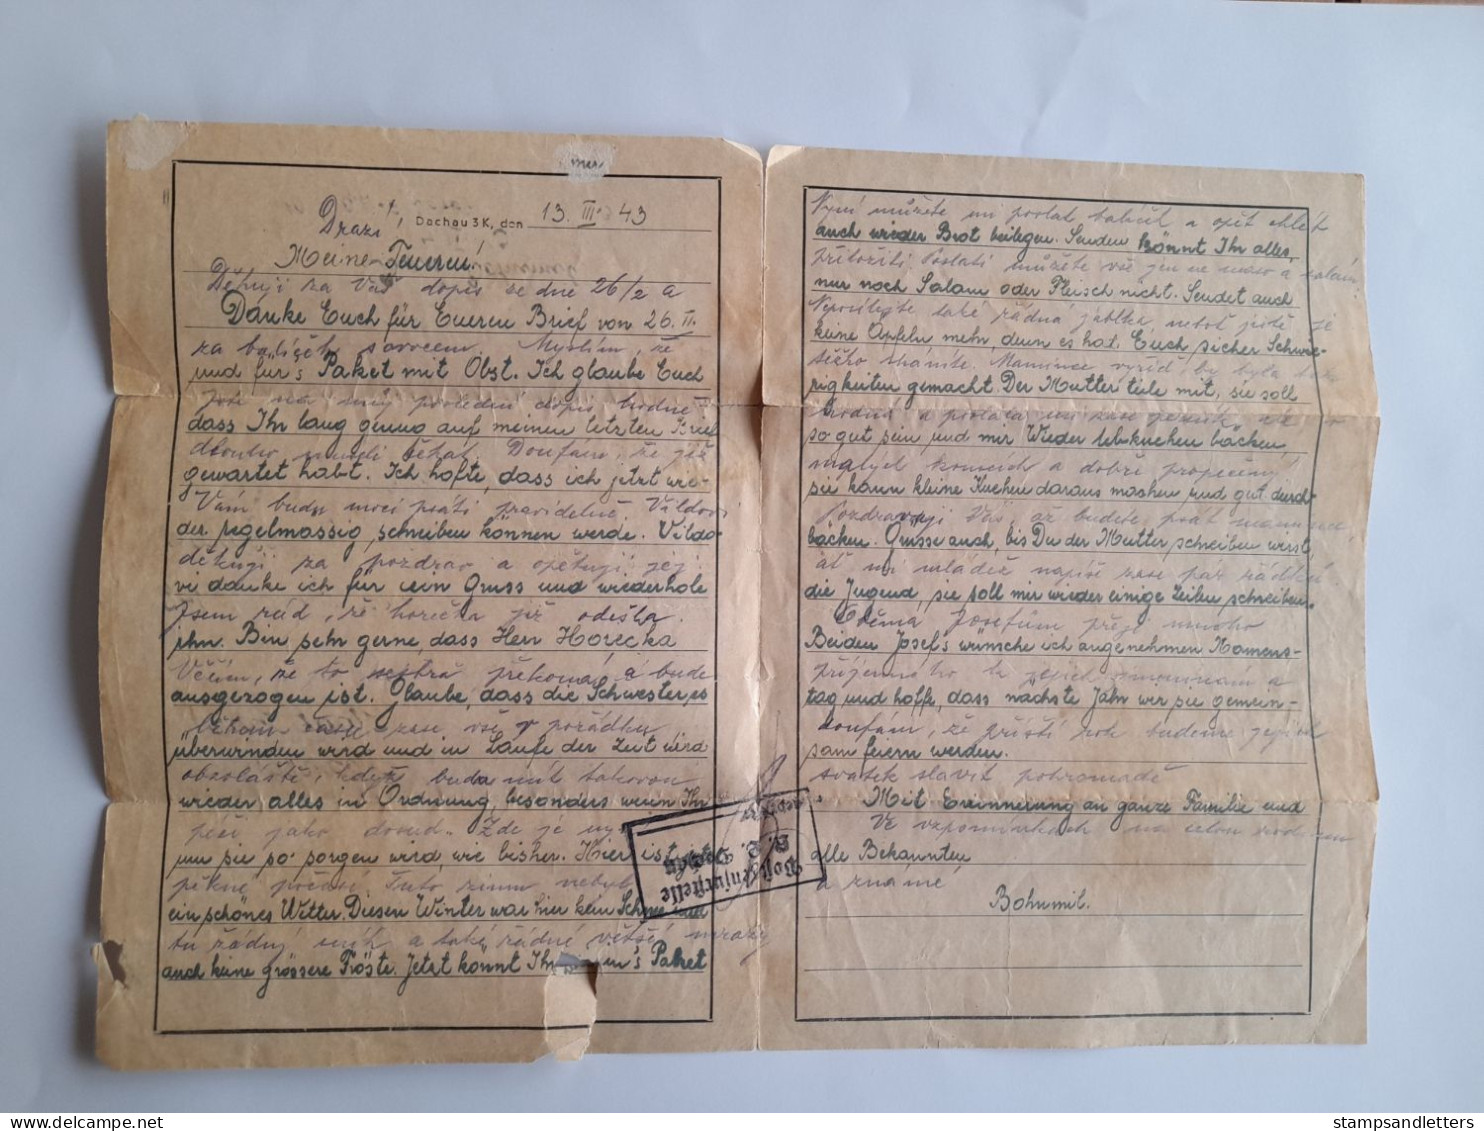 Drazí!
Dachau 3K, den 13. III. 43
Meine Teueren!
Děkuji za Váš dopis ze dne 26/2 a
Danke Euch für Eueren Brief von 26. II.
za balíček s ovocem. Myslím, že
und für's Paket mit Obst. Ich glaube Euch
jste na můj poslední dopis hodně
dass Ihr lang genug auf meinen letzten Brief
dlouho museli čekat. Doufám, že již
gewartet habt. Ich hoffe, dass ich jetzt wie-
Vám budu moci psáti pravidelně. Vildovi
der regelmässig schreiben können werde. Vildo-
děkuji za pozdrav a opětuji jej.
vi danke ich für sein Gruss und wiederhole
Jsem rád, že horečka již odešla.
ihn. Bin sehr gerne, dass Herr Horečka
Věřím, že to sestra překoná a bude
ausgezogen ist. Glaube, dass die Schwester es
zase vše v pořádku
überwinden wird und in Laufe der Zeit wird
obzvláště, když bude mít takovou
wieder alles in Ordnung, besonders wenn Ihr
péči jako dosud. Zde je
um sie so sorgen wird, wie bisher. Hier ist jetzt
pěkné počasí. Tuto zimu nebyl
ein schönes Wetter. Diesen Winter war hier kein Schnee und
tu řádný sníh a také řádné větší mrazy
auch keine grössere Fröste. Jetzt könnt Ihr in's Paket
Poststelle
K. L. Dachau
Nyní můžete mi poslat balíček a opět chléb
auch wieder Brot beilegen. Senden könnt Ihr alles,
přiložiti. Poslati můžete vše jen ne maso a salám
nur noch Salam oder Fleisch nicht. Sendet auch
Neposílejte také žádná jablka, neboť jistě je
keine Äpfeln mehr, denn es hat Euch sicher Schwie-
těžko sháníte. Mamince vyřiď, by byla tak
rigkeiten gemacht. Der Mutter teile mit, sie soll
hodná a poslala mi zase perník,
so gut sein und mir wieder Lebkuchen backen,
malých kouscích a dobře propečený
sie kann kleine Kuchen daraus machen und gut durch-
Pozdravuji Vás, až budete psát mamince,
backen. Grüsse auch, bis Du der Mutter schreiben wirst,
ať mi mládež napíše zase pár řádků.
die Jugend, sie soll mir wieder einige Zeilen schreiben.
Oběma Josefům přeji mnoho
Beiden Josef's wünsche ich angenehmen Namens-
příjemného k jejich jmeninám a
tag und hoffe, dass nächste Jahr wir sie gemein-
doufám, že příští rok budeme jejich
sam feiern werden.
svátek slavit pohromadě
Mit Erinnerung an ganze Familie und
Ve vzpomínkách na celou rodinu
alle Bekannten
a známé
Bohumil.
stampsandletters